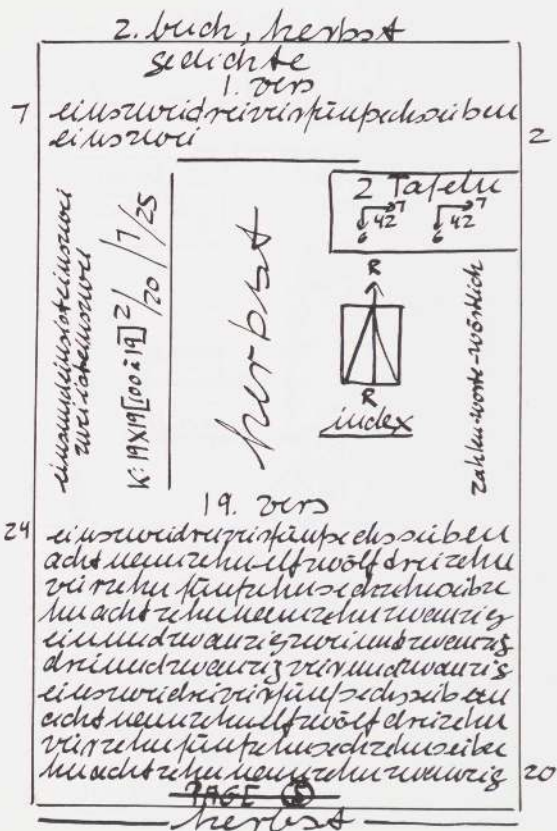 2. buch, herbst
gedichte
1. vers
7 einszweidreivierfünfsechssieben
einszwei 2
einsundeinsisteinszwei
zweiisteinszwei
K: 19x19[00à19]2/20/7/25
herbst
2 Tafeln
7 42 6 7 42 6
R
R
index
zahlen-worte-wörtlich
19. vers
24 einszweidreivierfünfsechssieben
achtneunzehnelfzwölfdreizehn
vierzehnfünfzehnsechzehnsiebze
hnachtzehnneunzehnzwanzig
einundzwanzigzweiundzwanzig
dreiundzwanzigvierundzwanzig
einszweidreivierfünfsechssieben
achtneunzehnelfzwölfdreizehn
vierzehnfünfzehnsechzehnsiebze
hnachtzehnneunzehnzwanzig 20
PAGE
herbst